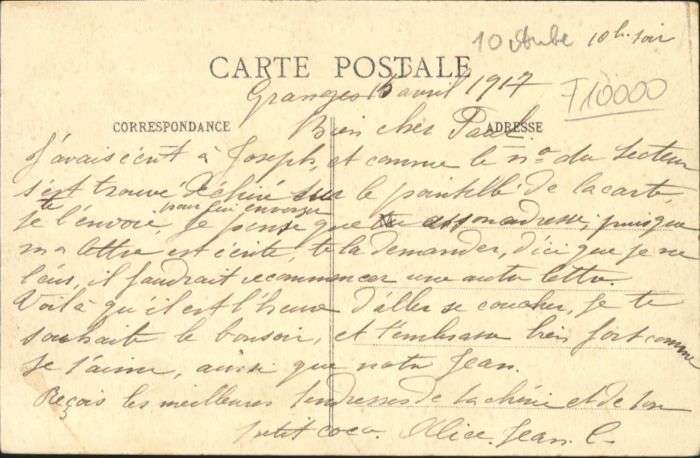 10 Aube 10h. soir
CARTE POSTALE
F10000
Granges 15 avril 1917
CORRESPONDANCE
ADRESSE
Bien cher Paul.
J'avais écrit à Joseph, et comme le no du secteur
s'est trouvé déchiré sur le pointillé de la carte,
je te l'envoie, pour lui envoyer je pense que tu as son adresse, puisque
ma lettre est écrite, te la demander, d'ici que je ne
l'eus, il faudrait recommencer une autre lettre.
Voilà qu'il est l'heure d'aller se coucher, je te
souhaite le bonsoir, et t'embrasse bien fort comme
je t'aime, ainsi que notre Jean.
Reçois les meilleures tendresses de ta chérie et de ton
petit coco. Alice, Jean. C